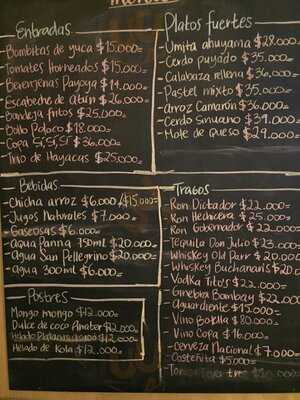 Entradas
- Bombitas de yuca $15.000=
- Tomates Horneados $15.000=
- Berenjenas Payoya $14.000=
- Escabeche de atún $26.000=
- Bandeja fritos $25.000=
- Bollo Poloco $18.000=
- Copa Sí, Sí, Sí $36.000=
- Trio de Hayacas $25.000=
Platos fuertes
- Umita ahuyama $28.000=
- Cerdo puyado $35.000=
- Calabaza rellena $36.000=
- Pastel mixto $35.000=
- Arroz Camarón $36.000=
- Cerdo Sinuano $39.000=
- Mote de queso $29.000=
Bebidas
- Chicha arroz $6.000/$15.000=
- Jugos Naturales $7.000=
- Gaseosas $6.000=
- Agua Panna 750ml $20.000=
- Agua San Pellegrino $20.000=
- Agua 300ml $6.000=
Postres
Mongo mongo $12.000=
Dulce de coco Anater $12.000=
Helado $12.000=
Helado de Kola $12.000=
Tragos
- Ron Dictador $22.000=
- Ron Hechicera $25.000=
- Ron Gobernador $22.000=
- Tequila Don Julio $23.000=
- Whiskey Old Parr $20.000=
- Whiskey Buchanan's $20.000=
- Vodka Tito's $22.000=
- Ginebra Bombay $22.000=
- Aguardiente $15.000=
- Vino Botella $80.000=
- Vino Copa $16.000=
- Cerveza Nacional $7.000=
- Costeñita $5.000=